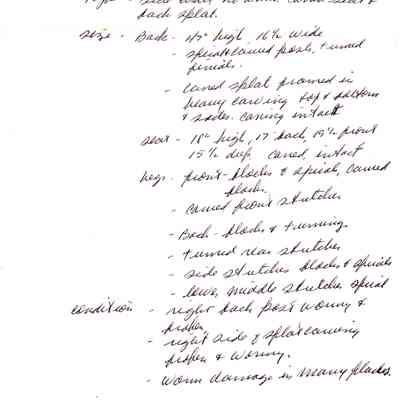 back splat.
size - Back - 45" high, 16½ wide
- spiral carved posts, turned
finials.
- caned splat framed in
heavy carving top & bottom
& sides. caning intact
seat - 18" high, 17" back, 19½ front
15½ deep, caned, intact
Legs - front - blocks & spiral, carved
blocks
- carved front stretcher
- Back - blocks & turnings
- turned rear stretcher
- side stretcher blocks & spirals
- lower middle stretcher spiral
condition - right back post wormy &
broken
- right side of splat carving
broken & wormy.
- worm damage in many places.